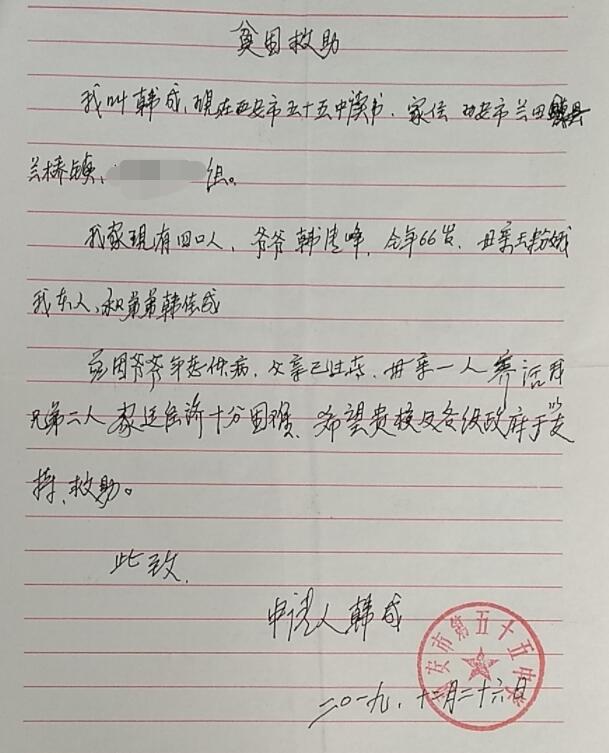 贫困救助
我叫韩成,现在西安市五十五中读书.家住西安市兰田县
兰桥镇、组。
我家现有四口人、爷爷韩清峰,今年66岁、母亲王粉娥
我本人、和弟弟韩佳成
因爷爷年老体病,父亲已过世、母亲一人养活我
兄弟二人家庭经济十分困难、希望贵校及各级政府予以支
持、救助。
此致、
申请人韩成
二〇一九、十二月二十六日
西安市第五十五中学